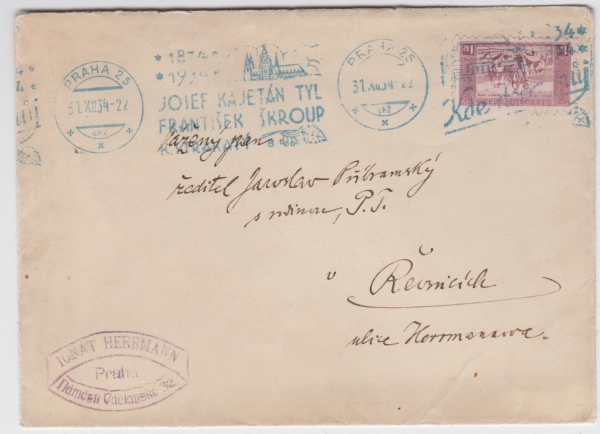 PRAHA 25
31.XII.34-22
1834
1934
JOSEF KAJETÁN TYL
FRANTIŠEK ŠKROUP
PRAHA 25
31.XII.34-22
Kde
Vážený pan
ředitel Jaroslav Příbramský
s rodinou, P.T.
v Řevnicích
ulice Herrmanova.
IGNÁT HERRMANN
Praha
Náměstí Václavské 32